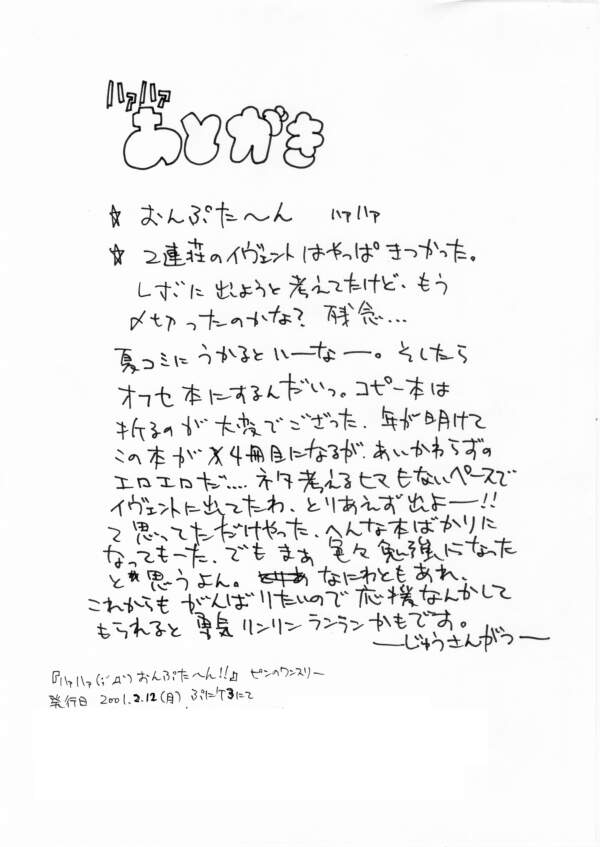 ハァハァ
あとがき
☆ おんぷた〜ん ハァハァ
☆ 2連荘のイヴェントはやっぱきつかった。
レボに出ようと考えてたけど、もう
〆切ったのかな? 残念...
夏コミにうかるといーなー。そしたら
オフセ本にするんだいっ。コピー本は
折るのが大変でござった、年が明けて
この本が4冊目になるが、あいかわらずの
エロエロだ....ネタ考えるヒマもないペースで
イヴェントに出てたわ、とりあえず出よー!!
て思ってただけやった、へんな本ばかりに
なってもーた、でもまぁ色々勉強になった
と思うよん。なにわともあれ、
これからもがんばりたいので応援なんかして
もらえると勇気リンリンランランかもです。
ーじゅうさんがつー
『ハァハァ(;´Д`)おんぷた〜ん!!』ピンのワンスリー
発行日 2001.2.12(月)ぷにケ3にて